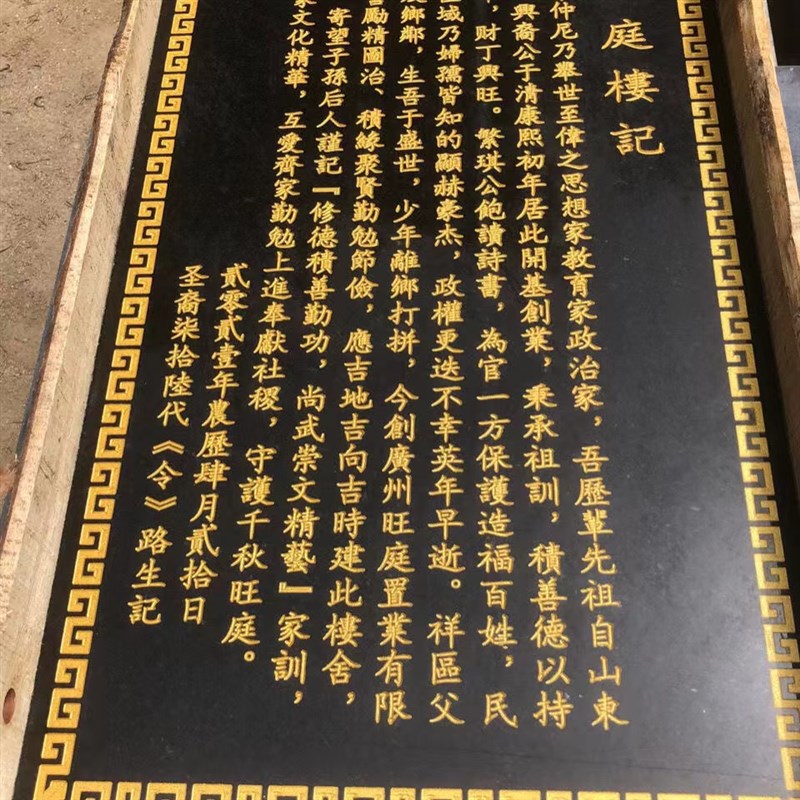 庭樓記
仲尼乃舉世至偉之思想家教育家政治家，吾歷輩先祖自山東
興裔公于清康熙初年居此開基創業，秉承祖訓，積善德以持
，財丁興旺。繁琪公飽讀詩書，為官一方保護造福百姓，民
區域乃婦孺皆知的顯赫豪杰，政權更迭不幸英年早逝。祥區父
鄉鄰，生吾于盛世，少年離鄉打拼，今創廣州旺庭置業有限
勵精圖治、積緣聚賢勤勉節儉，應吉地吉向吉時建此樓舍，
寄望子孫后人謹記『修德積善勤功，尚武崇文精藝』家訓，
家文化精華，互愛齊家勤勉上進奉獻社稷，守護千秋旺庭。
貳零貳壹年農歷肆月貳拾日
圣裔柒拾陸代《令》路生記